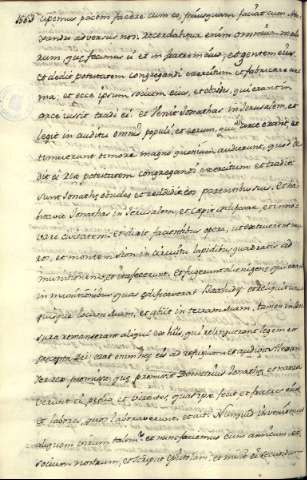 cipemus pacem facere cum eo, priusquam faciat cum Ale
xandro adversus nos. recordabitur enim omnium malo
rum, quæ fecimus in eum et in fratrem eius, et gentem eius,
et dedit ei potestatem congregandi exercitum et fabricare ar
ma, et esse ipsum socium eius, et obsides, qui erant in
arce iussit tradi ei. et venit Jonathas in Jerusalem, et
legit in auditu omnis populi, et eorum, qui in arce erant, et
timuerunt timore magno quoniam audierunt, quod de
dit ei Rex potestatem congregandi exercitum et traditi
sunt Jonathæ obsides et reddidit eos parentibus suis. et ha
bitavit Jonathas in Jerusalem, et cœpit ædificare, et inno
vare civitatem. et dixit facientibus opera, ut extruerent mu
ros, et montem Sion in circuitu lapidibus quadratis ad
munitionem, et ita fecerunt. et fugerunt alienigenæ qui erant
in munitionibus quas ædificaverat Bacchides, et reliquit unus
quisque locum suum, et abiit in terram suam, tantum in Beth
sura remanserunt aliqui ex his, qui reliquerunt legem et
præcepta Dei. erat enim hæc eis ad refugium. et audivit Alexan
der Rex promissa, quæ promisit Demetrius Jonathæ. et narra
verunt ei prælia et virtutes, quas ipse fecit et fratres eius,
et labores, quos laboraverunt, et ait. Numquid inveniemus
aliquem virum talem? et nunc faciemus eum amicum, et
socium nostrum, et scripsit epistolam, et misit ei secundum